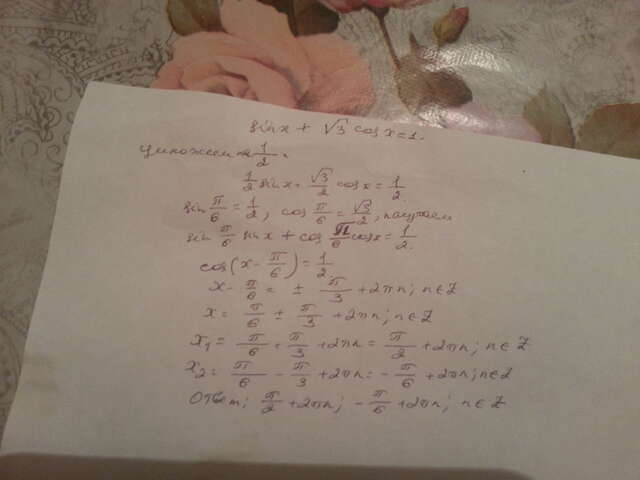 sin x + √3 cos x = 1.
Умножим на 1/2.
1/2 sin x + √3/2 cos x = 1/2.
sin π/6 = 1/2, cos π/6 = √3/2, получаем
sin π/6 sin x + cos π/6 cos x = 1/2.
cos(x - π/6) = 1/2.
x - π/6 = ± π/3 + 2πn; n∈Z
x = π/6 ± π/3 + 2πn; n∈Z
x₁ = π/6 + π/3 + 2πn = π/2 + 2πn; n∈Z
x₂ = π/6 - π/3 + 2πn = - π/6 + 2πn; n∈Z
Ответ: π/2 + 2πn; - π/6 + 2πn; n∈Z